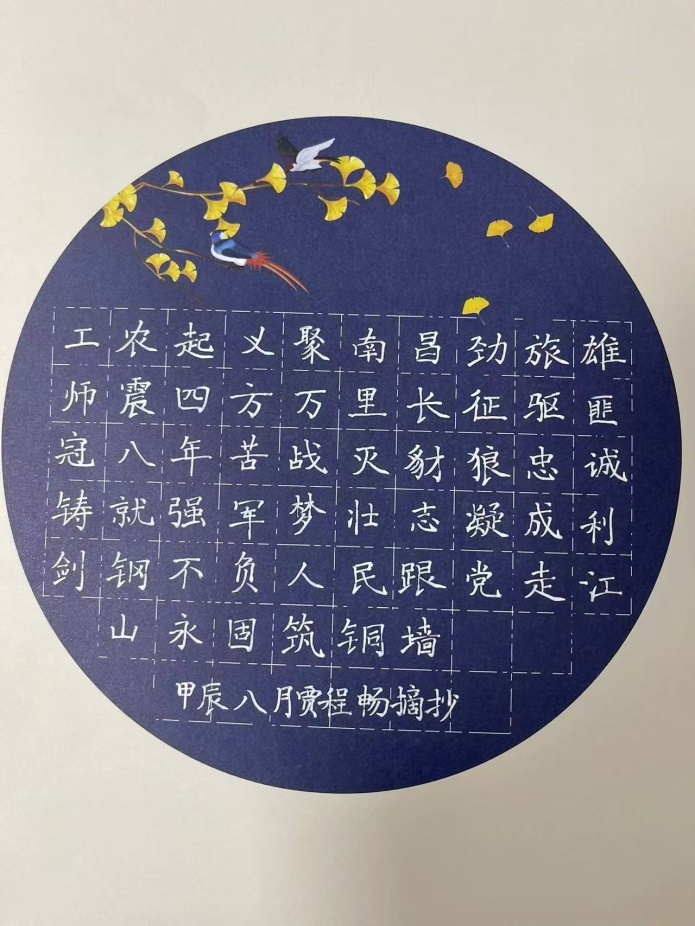 工农起义聚南昌劲旅雄
师震四方万里长征驱匪
冠八年苦战灭豺狼忠诚
铸就强军梦壮志凝成利
剑钢不负人民跟党走江
山永固筑铜墙
甲辰八月贾程畅摘抄